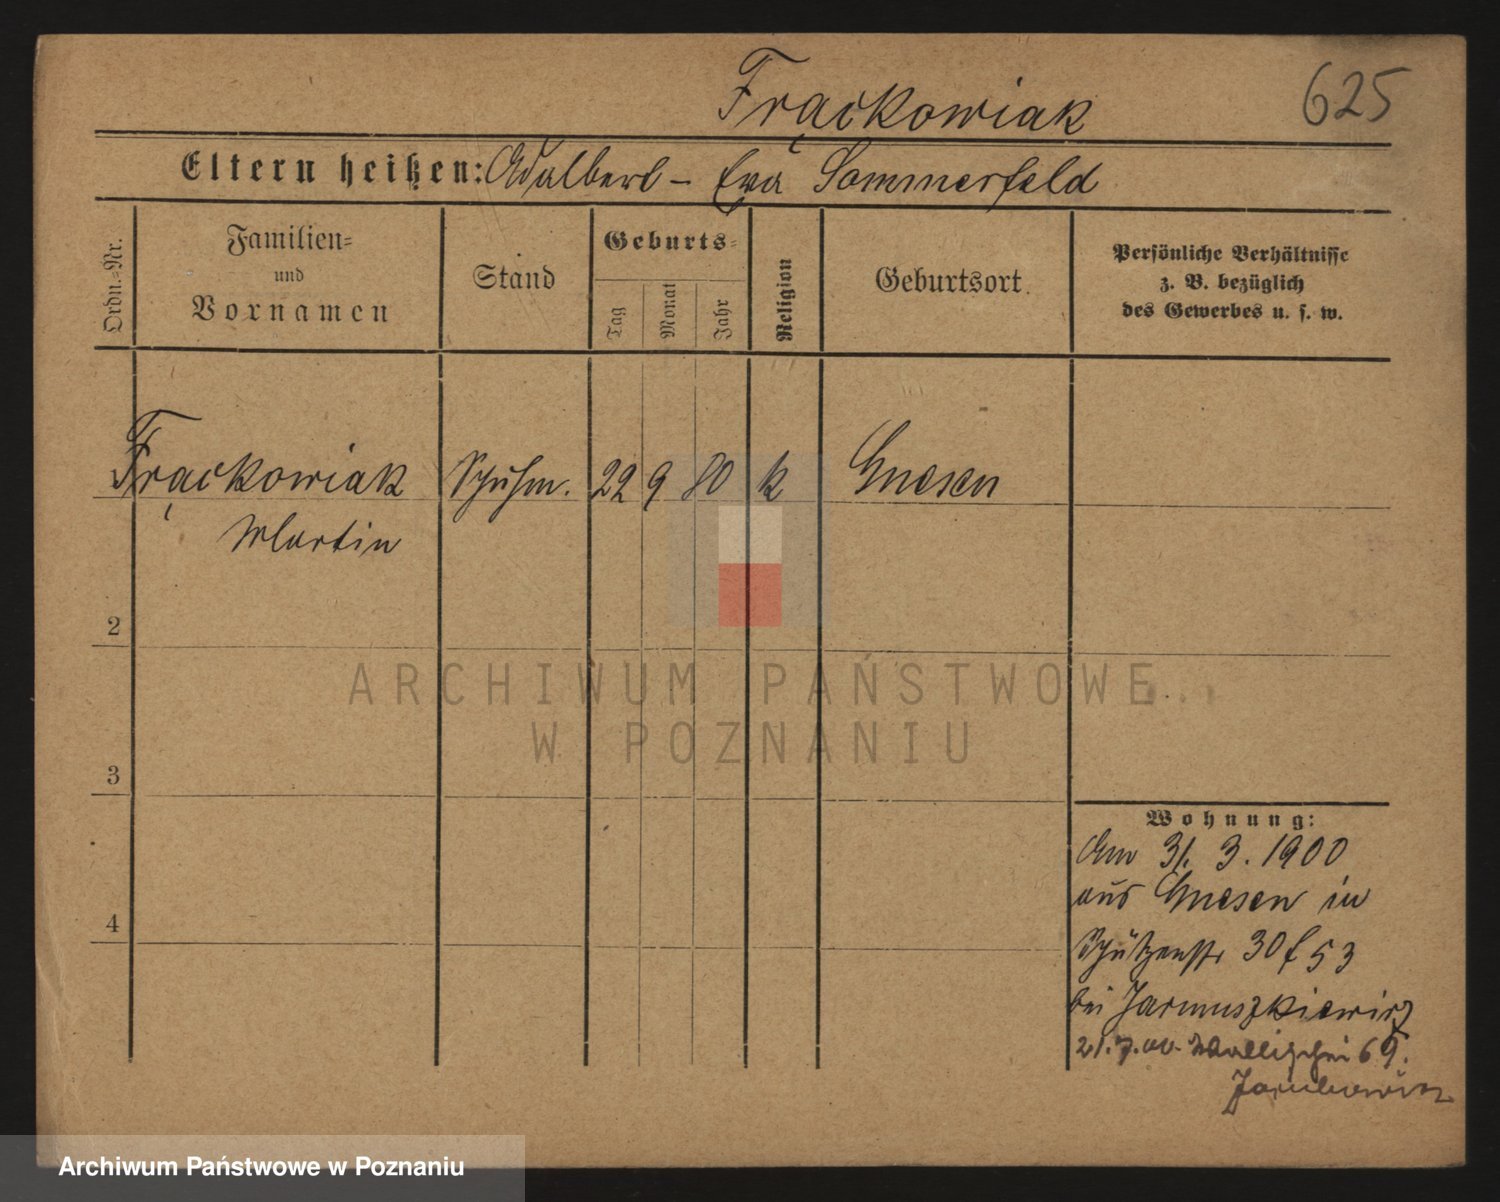 Frąckowiak 625
Eltern heißen: Adalbert - Eva Sommerfeld
Ordn.-Nr.
Familien-
und
Vornamen
Stand
Geburts-
Tag
Monat
Jahr
Religion
Geburtsort.
Persönliche Verhältnisse
z. B. bezüglich
des Gewerbes u. s. w.
Frąckowiak Schuhm. 22 9 80 k Gnesen
Martin
2
3
4
Wohnung:
Am 31. 3. 1900
aus Gnesen in
Schützenstr 30 f 53
bei Jarmuszkiewicz
21.7.00. Wallischei 69.
ARCHIWUM PAŃSTWOWE
W POZNANIU
Archiwum Państwowe w Poznaniu